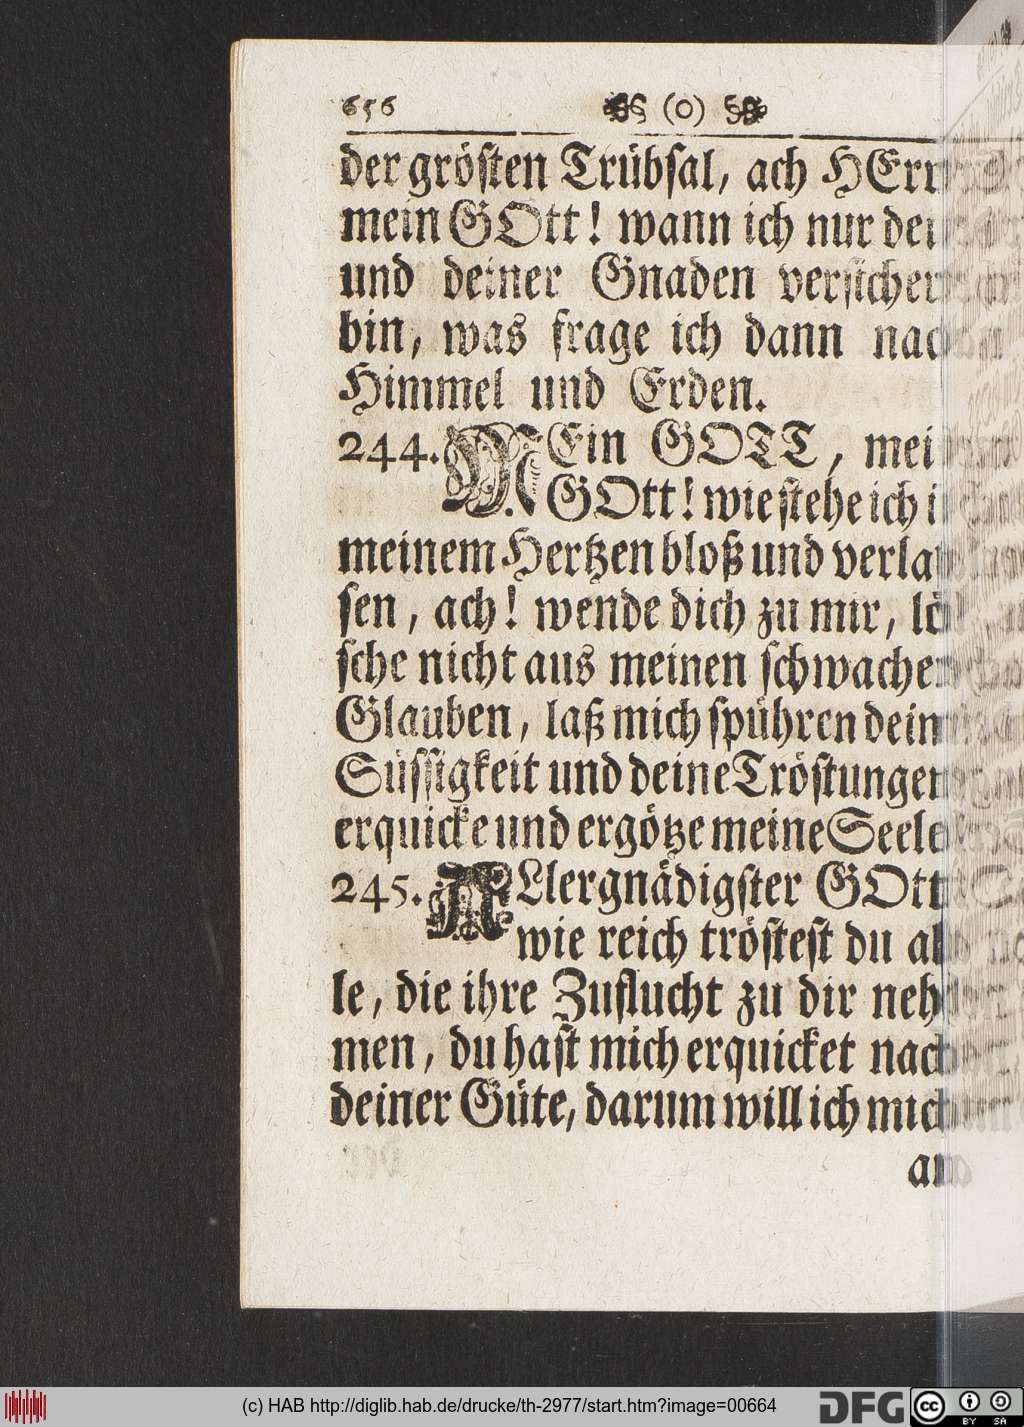 656 (o)
der grösten Trübsal, ach HErr
mein GOtt! wann ich nur dei
und deiner Gnaden versicher
bin, was frage ich dann nach
Himmel und Erden.
244. MEin GOTT, mei
GOtt! wie stehe ich i
meinem Hertzen bloß und verla
sen, ach! wende dich zu mir, lö
sche nicht aus meinen schwachen
Glauben, laß mich spühren dein
Süssigkeit und deine Tröstungen
erquicke und ergötze meine Seele
245. ALlergnädigster GOtt
wie reich tröstest du al
le, die ihre Zuflucht zu dir neh
men, du hast mich erquicket nach
deiner Güte, darum will ich mich
an
(c) HAB http://diglib.hab.de/drucke/th-2977/start.htm?image=00664
DFG
cc BY SA